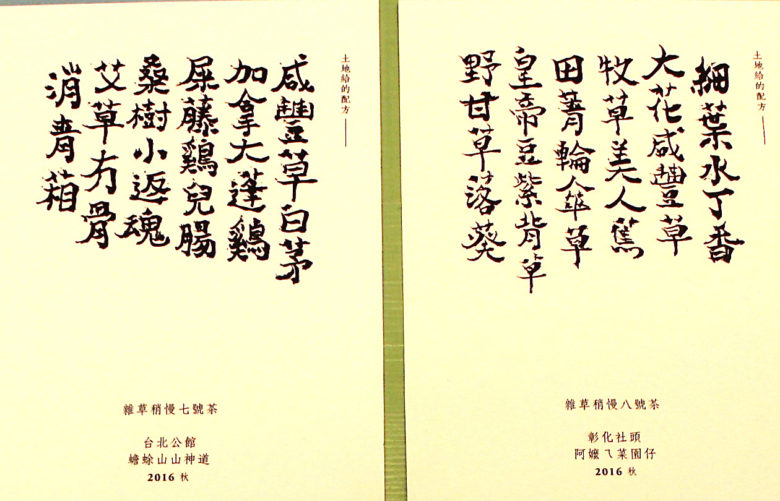 土地給的配方
咸豐草白茅
加拿大蓬鷄
屎藤鷄兒腸
桑樹小返魂
艾草冇骨
消青葙
雜草稍慢七號茶
台北公館
蟾蜍山山神道
2016 秋
土地給的配方
細葉水丁香
大花咸豐草
牧草美人蕉
田菁輪傘草
皇帝豆紫背草
野甘草落葵
雜草稍慢八號茶
彰化社頭
阿嬤ㄟ菜園仔
2016 秋